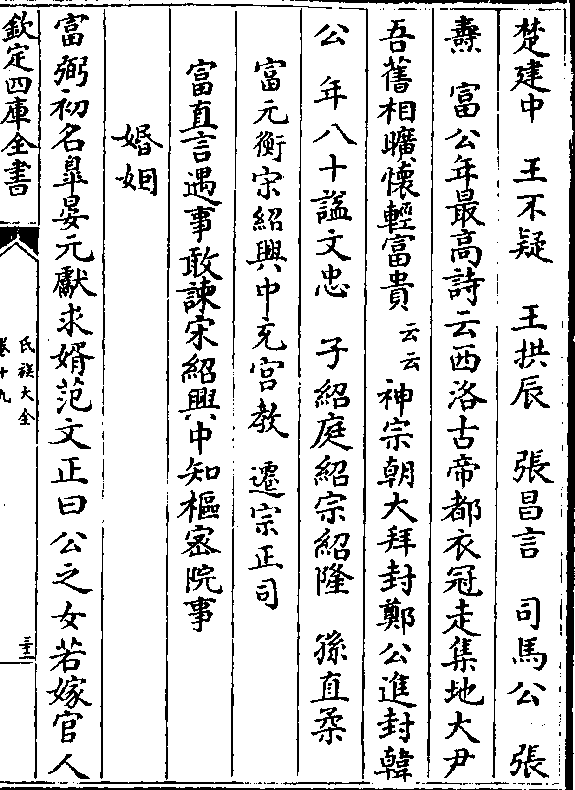 楚建中　王不疑　王拱辰　張昌言　司馬公　張
燾　富公年最高詩云西洛古帝都衣冠走集地大尹
吾舊相曠懷輕富貴云云神宗朝大拜封鄭公進封韓
公　年八十謚文忠　子紹庭紹宗紹隆　孫直柔
富元衡宋紹興中充宮教　遷宗正司
富直言遇事敢諫宋紹興中知樞密院事
婚姻
富弼初名臯晏元獻求婿范文正曰公之女若嫁官人
欽定四庫全書
氏族大全
卷十九
三十一